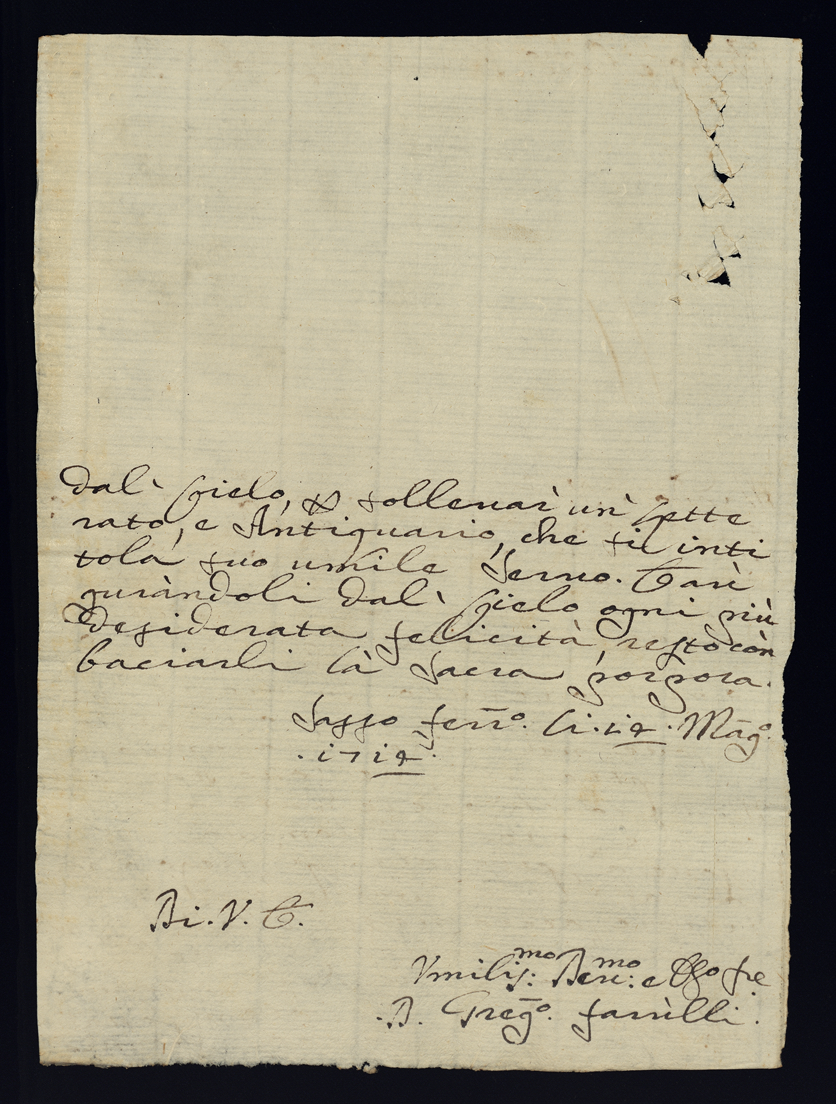 dal' Cielo, p sollevar un' Lette
rato, e Antiquario, che si inti
tola suo umile Servo. E au
gurandoli dal' Cielo ogni più
desiderata felicità, resto con
baciarli la Sacra porpora.
Sasso ferr̃o. li. 12. Mag̃o.
. 1712.
Di. V. E.
Vmilis:mo Deu:mo e
D. Greg̃o. fanulli.